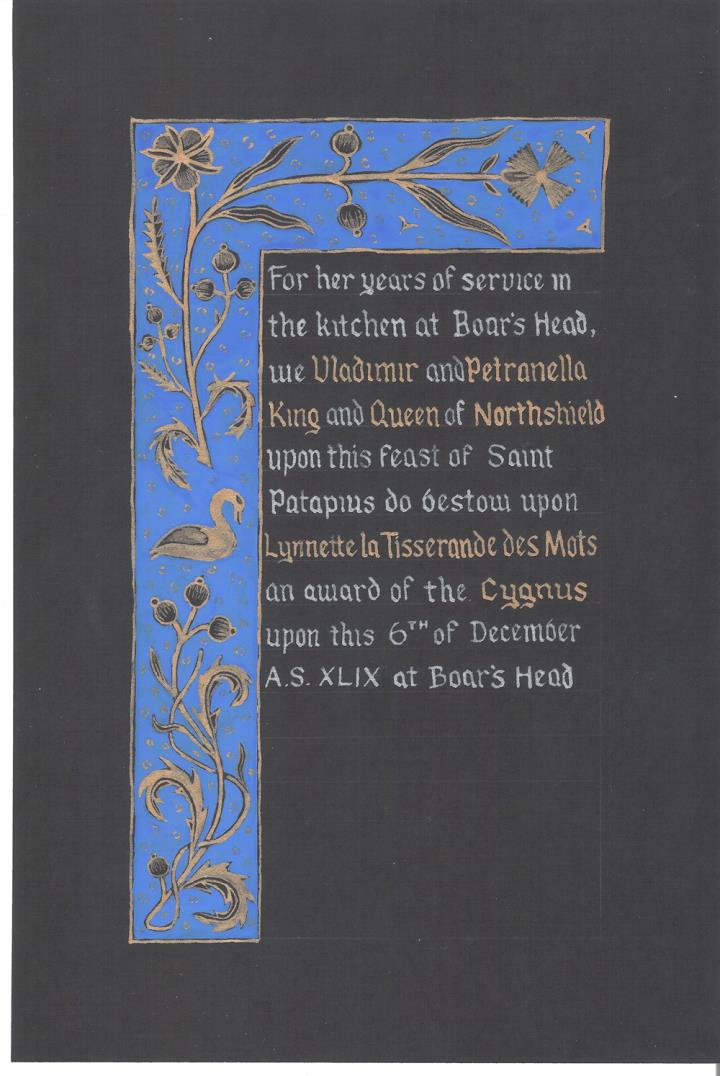 For her years of service in
the kitchen at Boar's Head,
we Vladimir and Petranella
King and Queen of Northshield
upon this feast of Saint
Patapius do bestow upon
Lynnette la Tisserande des Mots
an award of the Cygnus
upon this 6TH of December
A.S. XLIX at Boar's Head